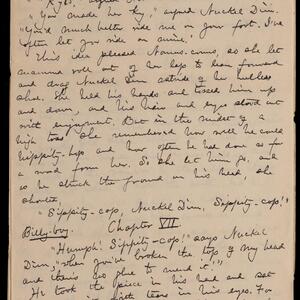 "You made her cry," argued Nuckel Dim,
"You'd much better ride me on your foot. I've
often let you ride on mine."
This idea pleased Nomus-comus, so she let
mamma roll out of her lap to lean forward
and drag Nuckel Dim astride of her
shoe. She held his hands and tossed him up
and down, and his hair and eyes stood out
with enjoyment. But in the midst of a
high toss she remembered how well he could
sippity-hop and how often he had done so for
a word from her. So she let him go, and
as he struck the ground on his head, she
shouted,
"Sippity-cop, Nuckel Dim, Sippity-cop!"
Billy-boy. Chapter VII
"Humph! Sippity-cop!" says Nuckel
Dim, "when you've broken the top of my head
and there's no glue to mend it!"
He took the piece in his hand and sat
with tears in his eyes. For